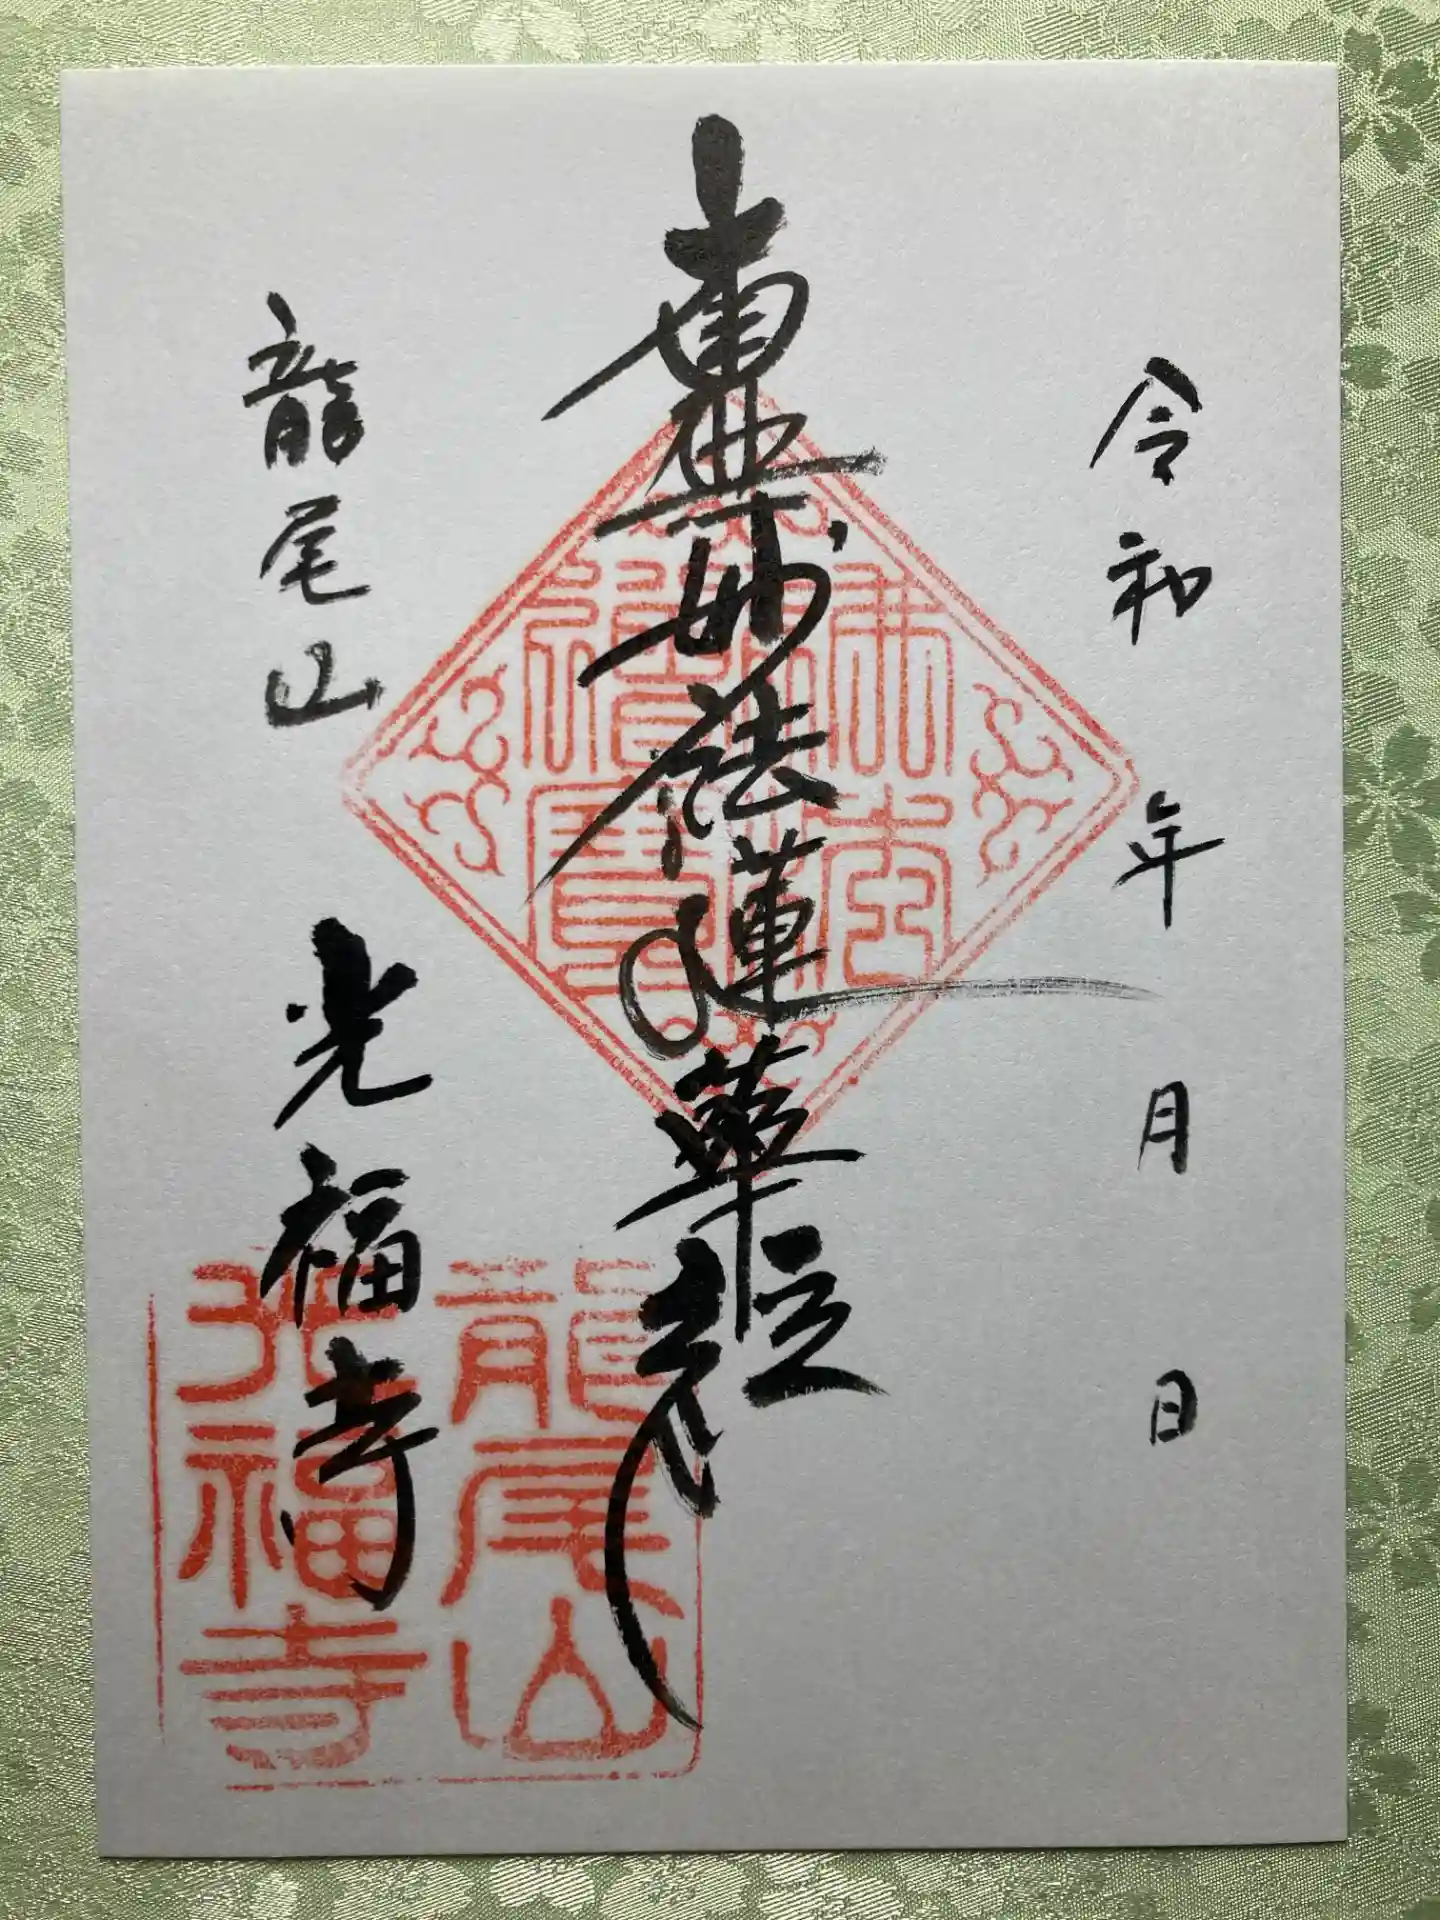 令和 年 月 日
南無妙法蓮華経
龍尾山 光福寺
龍尾山
光福寺